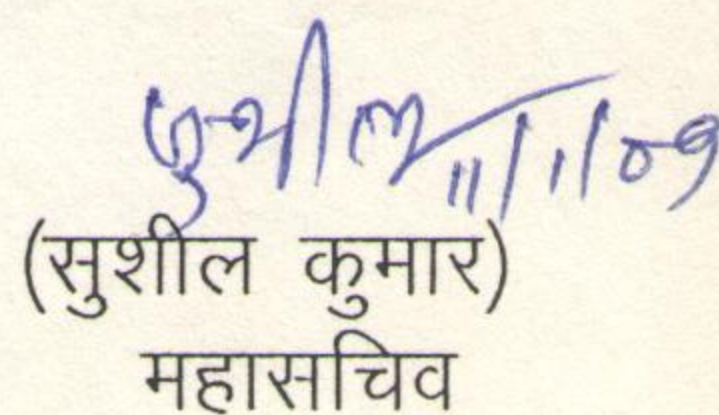 सुशील 11/1/09
(सुशील कुमार)
महासचिव